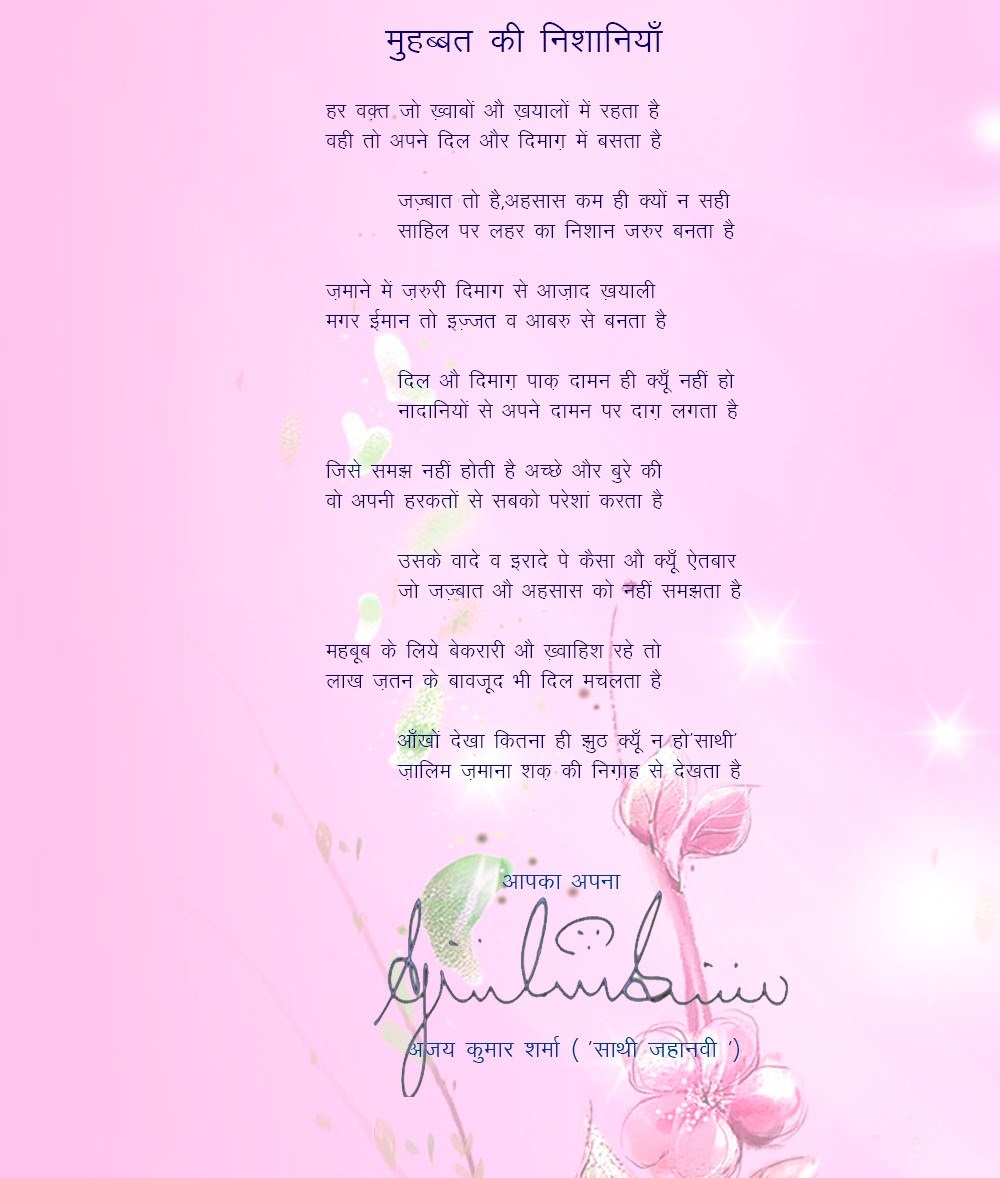 मुहब्बत की निशानियाँ
हर वक़्त जो ख़्वाबों औ ख़यालों में रहता है
वही तो अपने दिल और दिमाग़ में बसता है
जज़्बात तो है,अहसास कम ही क्यों न सही
साहिल पर लहर का निशान जरुर बनता है
ज़माने में ज़रुरी दिमाग से आज़ाद ख़याली
मगर ईमान तो इज़्जत व आबरु से बनता है
दिल औ दिमाग़ पाक़ दामन ही क्यूँ नहीं हो
नादानियों से अपने दामन पर दाग़ लगता है
जिसे समझ नहीं होती है अच्छे और बुरे की
वो अपनी हरकतों से सबको परेशां करता है
उसके वादे व इरादे पे कैसा औ क्यूँ ऐतबार
जो जज़्बात औ अहसास को नहीं समझता है
महबूब के लिये बेकरारी औ ख़्वाहिश रहे तो
लाख ज़तन के बावजूद भी दिल मचलता है
आँखों देखा कितना ही झुठ क्यूँ न हो'साथी'
ज़ालिम ज़माना शक़ की निग़ाह से देखता है
आपका अपना
अजय कुमार शर्मा ( 'साथी जहानवी ')